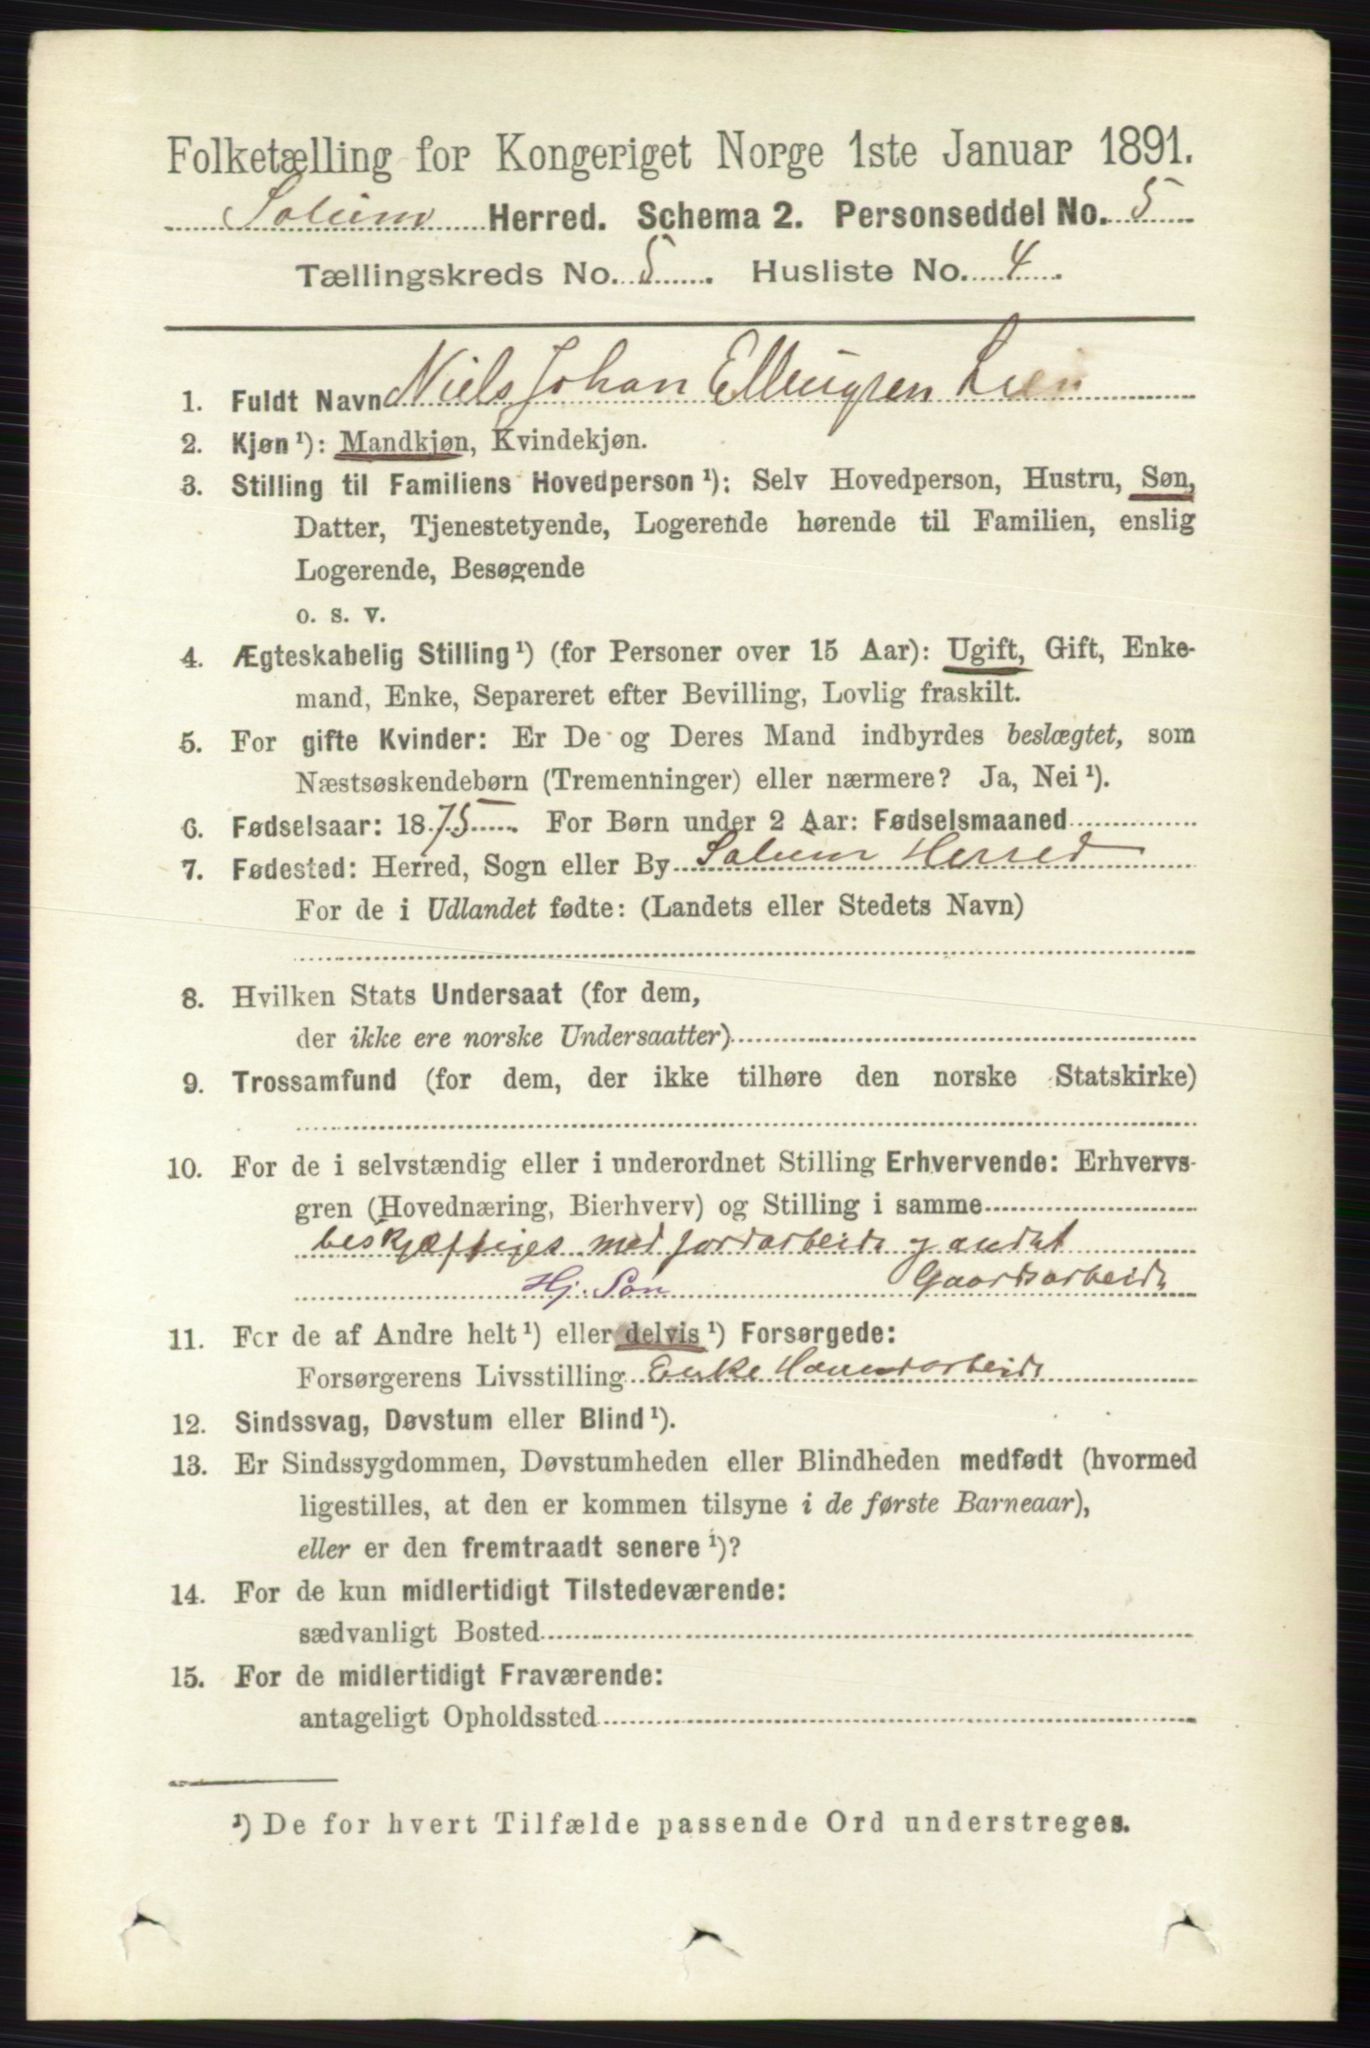 Folketælling for Kongeriget Norge 1ste Januar 1891.
Solum Herred. Schema 2. Personseddel No. 5
Tællingskreds No. 5. Husliste No. 4.
1. Fuldt Navn Niels Johan Ellingsen Lien
2. Kjøn ¹): Mandkjøn, Kvindekjøn.
3. Stilling til Familiens Hovedperson ¹): Selv Hovedperson, Hustru, Søn,
Datter, Tjenestetyende, Logerende hørende til Familien, enslig
Logerende, Besøgende
o. s. v.
4. Ægteskabelig Stilling ¹) (for Personer over 15 Aar): Ugift, Gift, Enke-
mand, Enke, Separeret efter Bevilling, Lovlig fraskilt.
5. For gifte Kvinder: Er De og Deres Mand indbyrdes beslægtet, som
Næstsøskendebørn (Tremenninger) eller nærmere? Ja, Nei ¹).
6. Fødselsaar: 1875. For Børn under 2 Aar: Fødselsmaaned
7. Fødested: Herred, Sogn eller By Solum Herred
For de i Udlandet fødte: (Landets eller Stedets Navn)
8. Hvilken Stats Undersaat (for dem,
der ikke ere norske Undersaatter)
9. Trossamfund (for dem, der ikke tilhøre den norske Statskirke)
10. For de i selvstændig eller i underordnet Stilling Erhvervende: Erhvervs-
gren (Hovednæring, Bierhverv) og Stilling i samme
beskjæftiges med jordarbeide og andet
Hj. Søn Gaardsarbeide
11. For de af Andre helt ¹) eller delvis ¹) Forsørgede:
Forsørgerens Livsstilling Enke Haandarbeide
12. Sindssvag, Døvstum eller Blind ¹).
13. Er Sindssygdommen, Døvstumheden eller Blindheden medfødt (hvormed
ligestilles, at den er kommen tilsyne i de første Barneaar),
eller er den fremtraadt senere ¹)?
14. For de kun midlertidigt Tilstedeværende:
sædvanligt Bosted
15. For de midlertidigt Fraværende:
antageligt Opholdssted
¹) De for hvert Tilfælde passende Ord understreges.